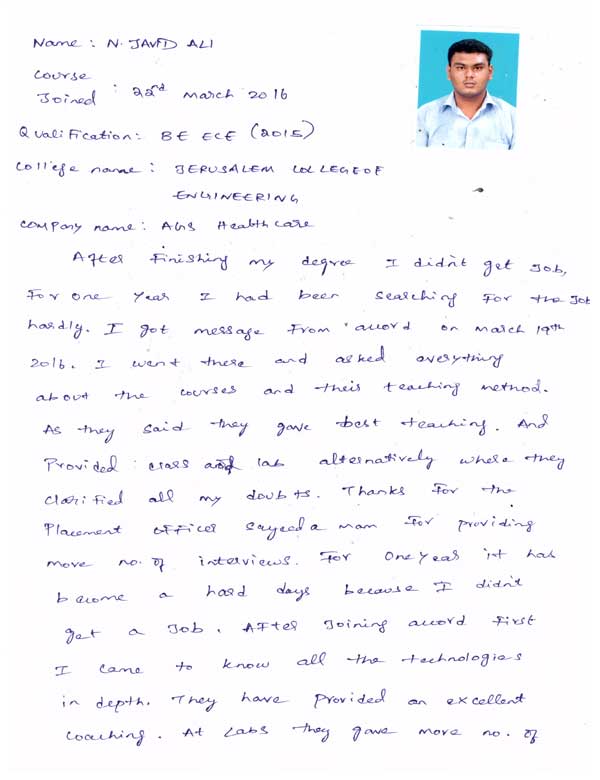 Name : N. JAVID ALI
Course
Joined : 22nd March 2016
Qualification: BE ECE (2015)
College name : JERUSALEM COLLEGE OF
ENGINEERING
Company name: AGS Healthcare
After Finishing my degree I didn't get Job,
For one year I had been searching For the Job
hardly. I got message From 'accord on March 19th
2016. I went there and asked everything
about the courses and their teaching method.
As they said they gave best teaching. And
Provided class and lab alternatively where they
clarified all my doubts. Thanks For the
Placement officer sayeeda mam For providing
more no. of interviews. For One year it has
become a hard days because I didn't
get a Job. After Joining accord First
I came to know all the technologies
in depth. They have provided an excellent
coaching. At Labs they gave more no. of